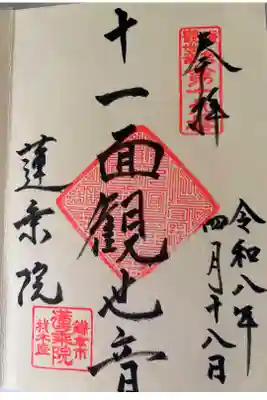 奉拝
令和八年
四月十八日
十一面観世音
蓮乗院
鎌倉市
蓮乗院
材木座